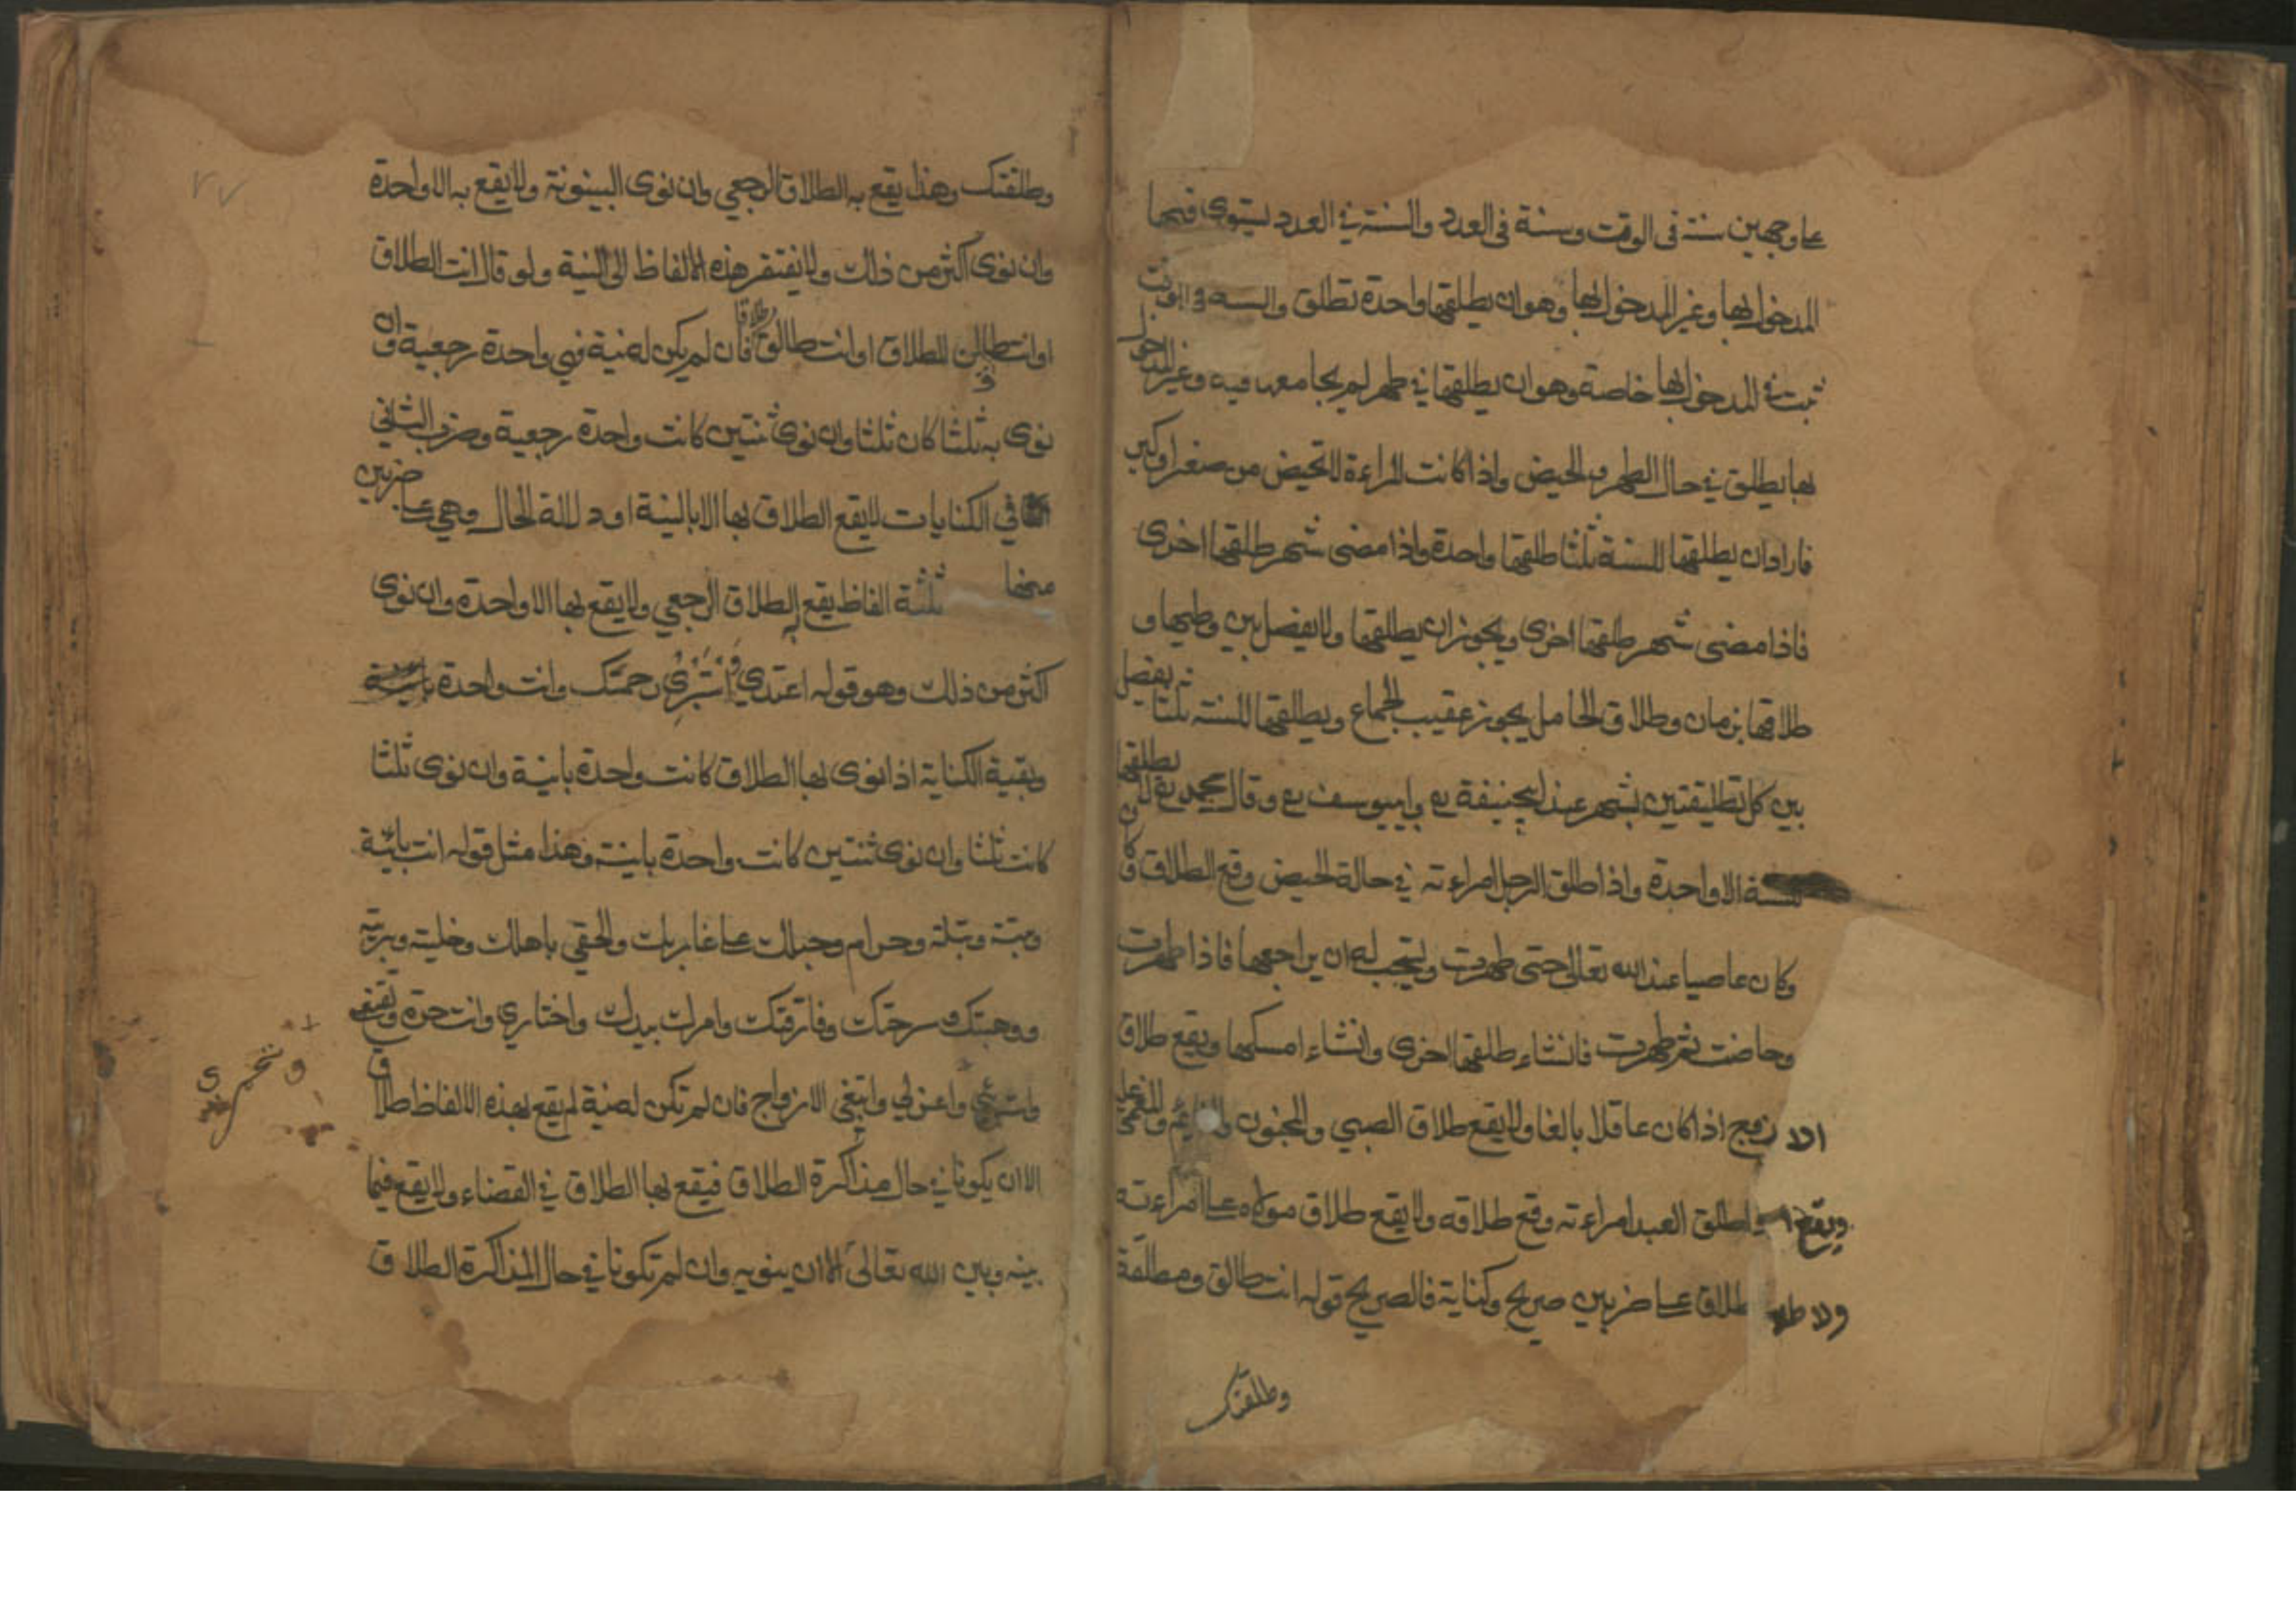 على وجهين سنة في الوقت وسنة في العدد والسنة في العدد ليتوى فيها
المدخول بها وغير المدخول بها وهو ان يطلقها واحدة تطلق والسنة في الوقت
تبت في المدخول بها خاصة وهو ان يطلقها في طهر لم يجامعها فيه وغير المدخول
بها يطلق في حال الطهر والحيض واذا كانت المراءة لا تحيض من صغر او كبر
فاراد ان يطلقها للسنة ثلثا طلقها واحدة واذا مضى شهر طلقها اخرى
فاذا مضى شهر طلقها اخرى ويجوز ان يطلقها ولا يفصل بين وطيها و
طلاقها بزمان وطلاق الحامل يجوز عقيب الجماع ويطلقها للسنة ثلثا يفصل
بين كل تطليقتين بشهر عند ابيحنيفة رع وابييوسف رع وقال محمد رع لا يطلقها
للسنة الا واحدة واذا طلق الرجل امراءته في حالة الحيض وقع الطلاق
وكان عاصيا عند الله تعالى حتى طهرت وليتحب له ان يراجعها فاذا طهرت
وحاضت ثم طهرت فانشاء طلقها اخرى وانشاء امسكها ويقع طلاق
زوج اذا كان عاقلا بالغا ولا يقع طلاق الصبي والمجنون والنايم والمغمى عليه
ويقع واطلق العبد امراءته وقع طلاقه ولا يقع طلاق مولاه على امراءته
طلاق على ضربين صريح وكناية فالصريح قوله انت طالق ومطلقة
وطلقتك
٢٧
وطلقتك وهذا يقع به الطلاق الرجعي وان نوى البينونة ولا يقع به الا واحدة
وان نوى اكثر من ذلك ولا يفتقر هذه الالفاظ الى النية ولو قال انت الطلاق
او انت طالق الطلاق او انت طالق طلاقا فان لم يكن له نية فهي واحدة رجعية وان
نوى به ثلثا كان ثلثا وان نوى ثنتين كانت واحدة رجعية وضرب الثاني
في الكنايات لا يقع الطلاق بها الا بالنية او دلالة الحال وهي على ضربين
منها ثلثة الفاظ يقع به الطلاق الرجعي ولا يقع بها الا واحدة وان نوى
اكثر من ذلك وهو قوله اعتدي واستبري رحمتك وانت واحدة
وبقية الكناية اذا نوى بها الطلاق كانت واحدة باينة وان نوى ثلثا
كانت ثلثا وان نوى ثنتين كانت واحدة باينة وهذا مثل قوله انت باينة
وبتة وبتلة وحرام وحبلك على غاربك والحقي باهلك وخلية وبرية
ووهبتك وسرحتك وفارقتك وامرك بيدك واختاري وانت حرة وتقنعي
وتخمري
واستتري واعزلي وابتغي الازواج فان لم تكن له نية لم يقع بهذه الالفاظ طلاق
الا ان يكونا في حال مذاكرة الطلاق فيقع بها الطلاق في القضاء ولا يقع فيما
بينه وبين الله تعالى الا ان ينويه وان لم تكونا في حال المذاكرة الطلاق